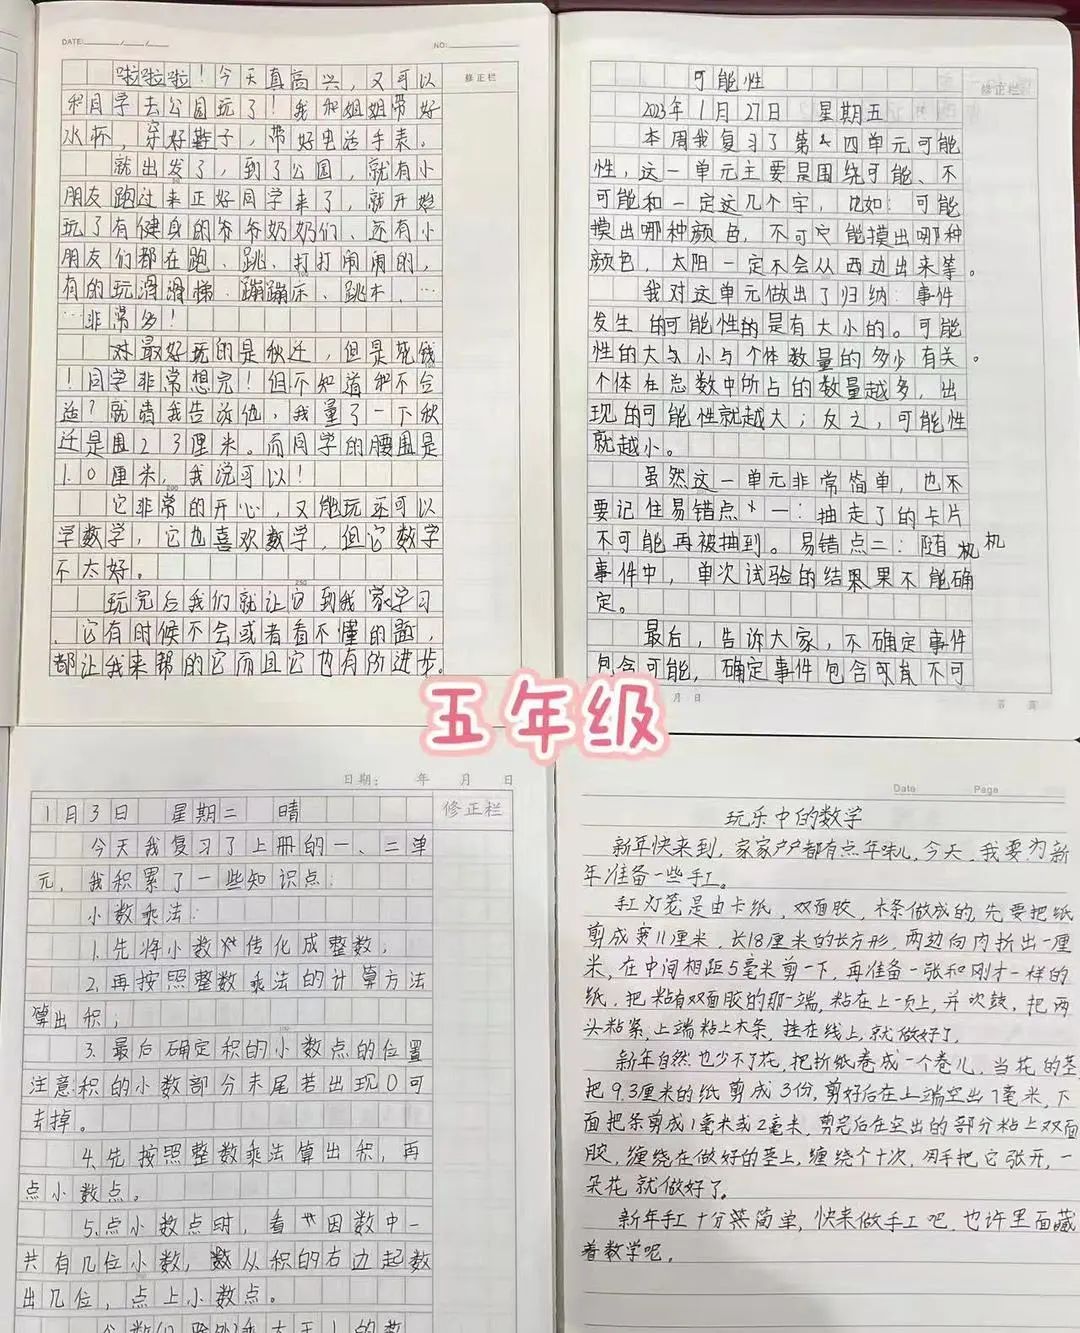 DATE: / /
NO:
修正栏
啦啦啦！今天真高兴，又可以
和同学去公园玩了！我和姐姐带好
水杯，穿好鞋子，带好电话手表。
就出发了，到了公园，就有小
朋友跑过来正好同学来了，就开始
玩了有健身的爷爷奶奶们、还有小
朋友们都在跑、跳、打打闹闹的，
有的玩滑滑梯、蹦蹦床、跳木，…
…非常多！
对最好玩的是秋迁，但是花钱
！同学非常想完！但不知道和不合
适？就请我告诉他，我量了一下秋
迁是围23厘米。而同学的腰围是
1.0厘米，我说可以！
200
它非常的开心，又能玩还可以
学数学，它也喜欢数学，但它数学
不太好。
250
玩完后我们就让它到我家学习
，它有时候不会或者看不懂的题，
都让我来帮的它而且它也有所进步。
修正栏
可能性
2023年1月27日 星期五
本周我复习了第四单元可能
性，这一单元主要是围绕可能、不
可能和一定这几个字，比如：可能
摸出哪种颜色，不可能摸出哪种
颜色，太阳一定不会从西边出来等。
我对这单元做出了归纳：事件
发生的可能性的是有大小的。可能
性的大与小与个体数量的多少有关。
个体在总数中所占的数量越多，出
现的可能性就越大；反之，可能性
就越小。
虽然这一单元非常简单，也不
要记住易错点一：抽走了的卡片
不可能再被抽到。易错点二：随机
事件中，单次试验的结果不能确
定。
最后，告诉大家，不确定事件
包含可能，确定事件包含不可
月 日
第 页
五年级
日期： 年 月 日
修正栏
1月3日 星期二 晴
今天我复习了上册的一、二单
元，我积累了一些知识点：
小数乘法：
1.先将小数传化成整数；
2.再按照整数乘法的计算方法
算出积；
100
3.最后确定积的小数点的位置
注意:积的小数部分末尾若出现0可
去掉。
4.先按照整数乘法算出积，再
点小数点。
5.点小数点时，看因数中一
共有几位小数，从积的右边起数
出几位，点上小数点。
Date Page
玩乐中的数学
新年快来到，家家户户都有点年味儿，今天，我要为新
年准备一些手工。
红灯笼是由卡纸，双面胶，木条做成的，先要把纸
剪成宽11厘米，长18厘米的长方形，两边向内折出一厘
米，在中间相距5毫米剪一下，再准备一张和刚才一样的
纸，把粘有双面胶的那一端，粘在上一页上，并吹鼓，把两
头粘紧，上端粘上木条，挂在线上，就做好了。
新年自然也少不了花，把折纸卷成一个卷儿，当花的茎
把9.3厘米的纸剪成3份，剪好后在上端空出7毫米，下
面把条剪成1毫米或2毫米，剪完后在空出的部分粘上双面
胶，缠绕在做好的茎上，缠绕个十次，用手把它张开，一
朵花就做好了。
新年手工十分简单，快来做手工吧，也许里面藏
着数学呢。